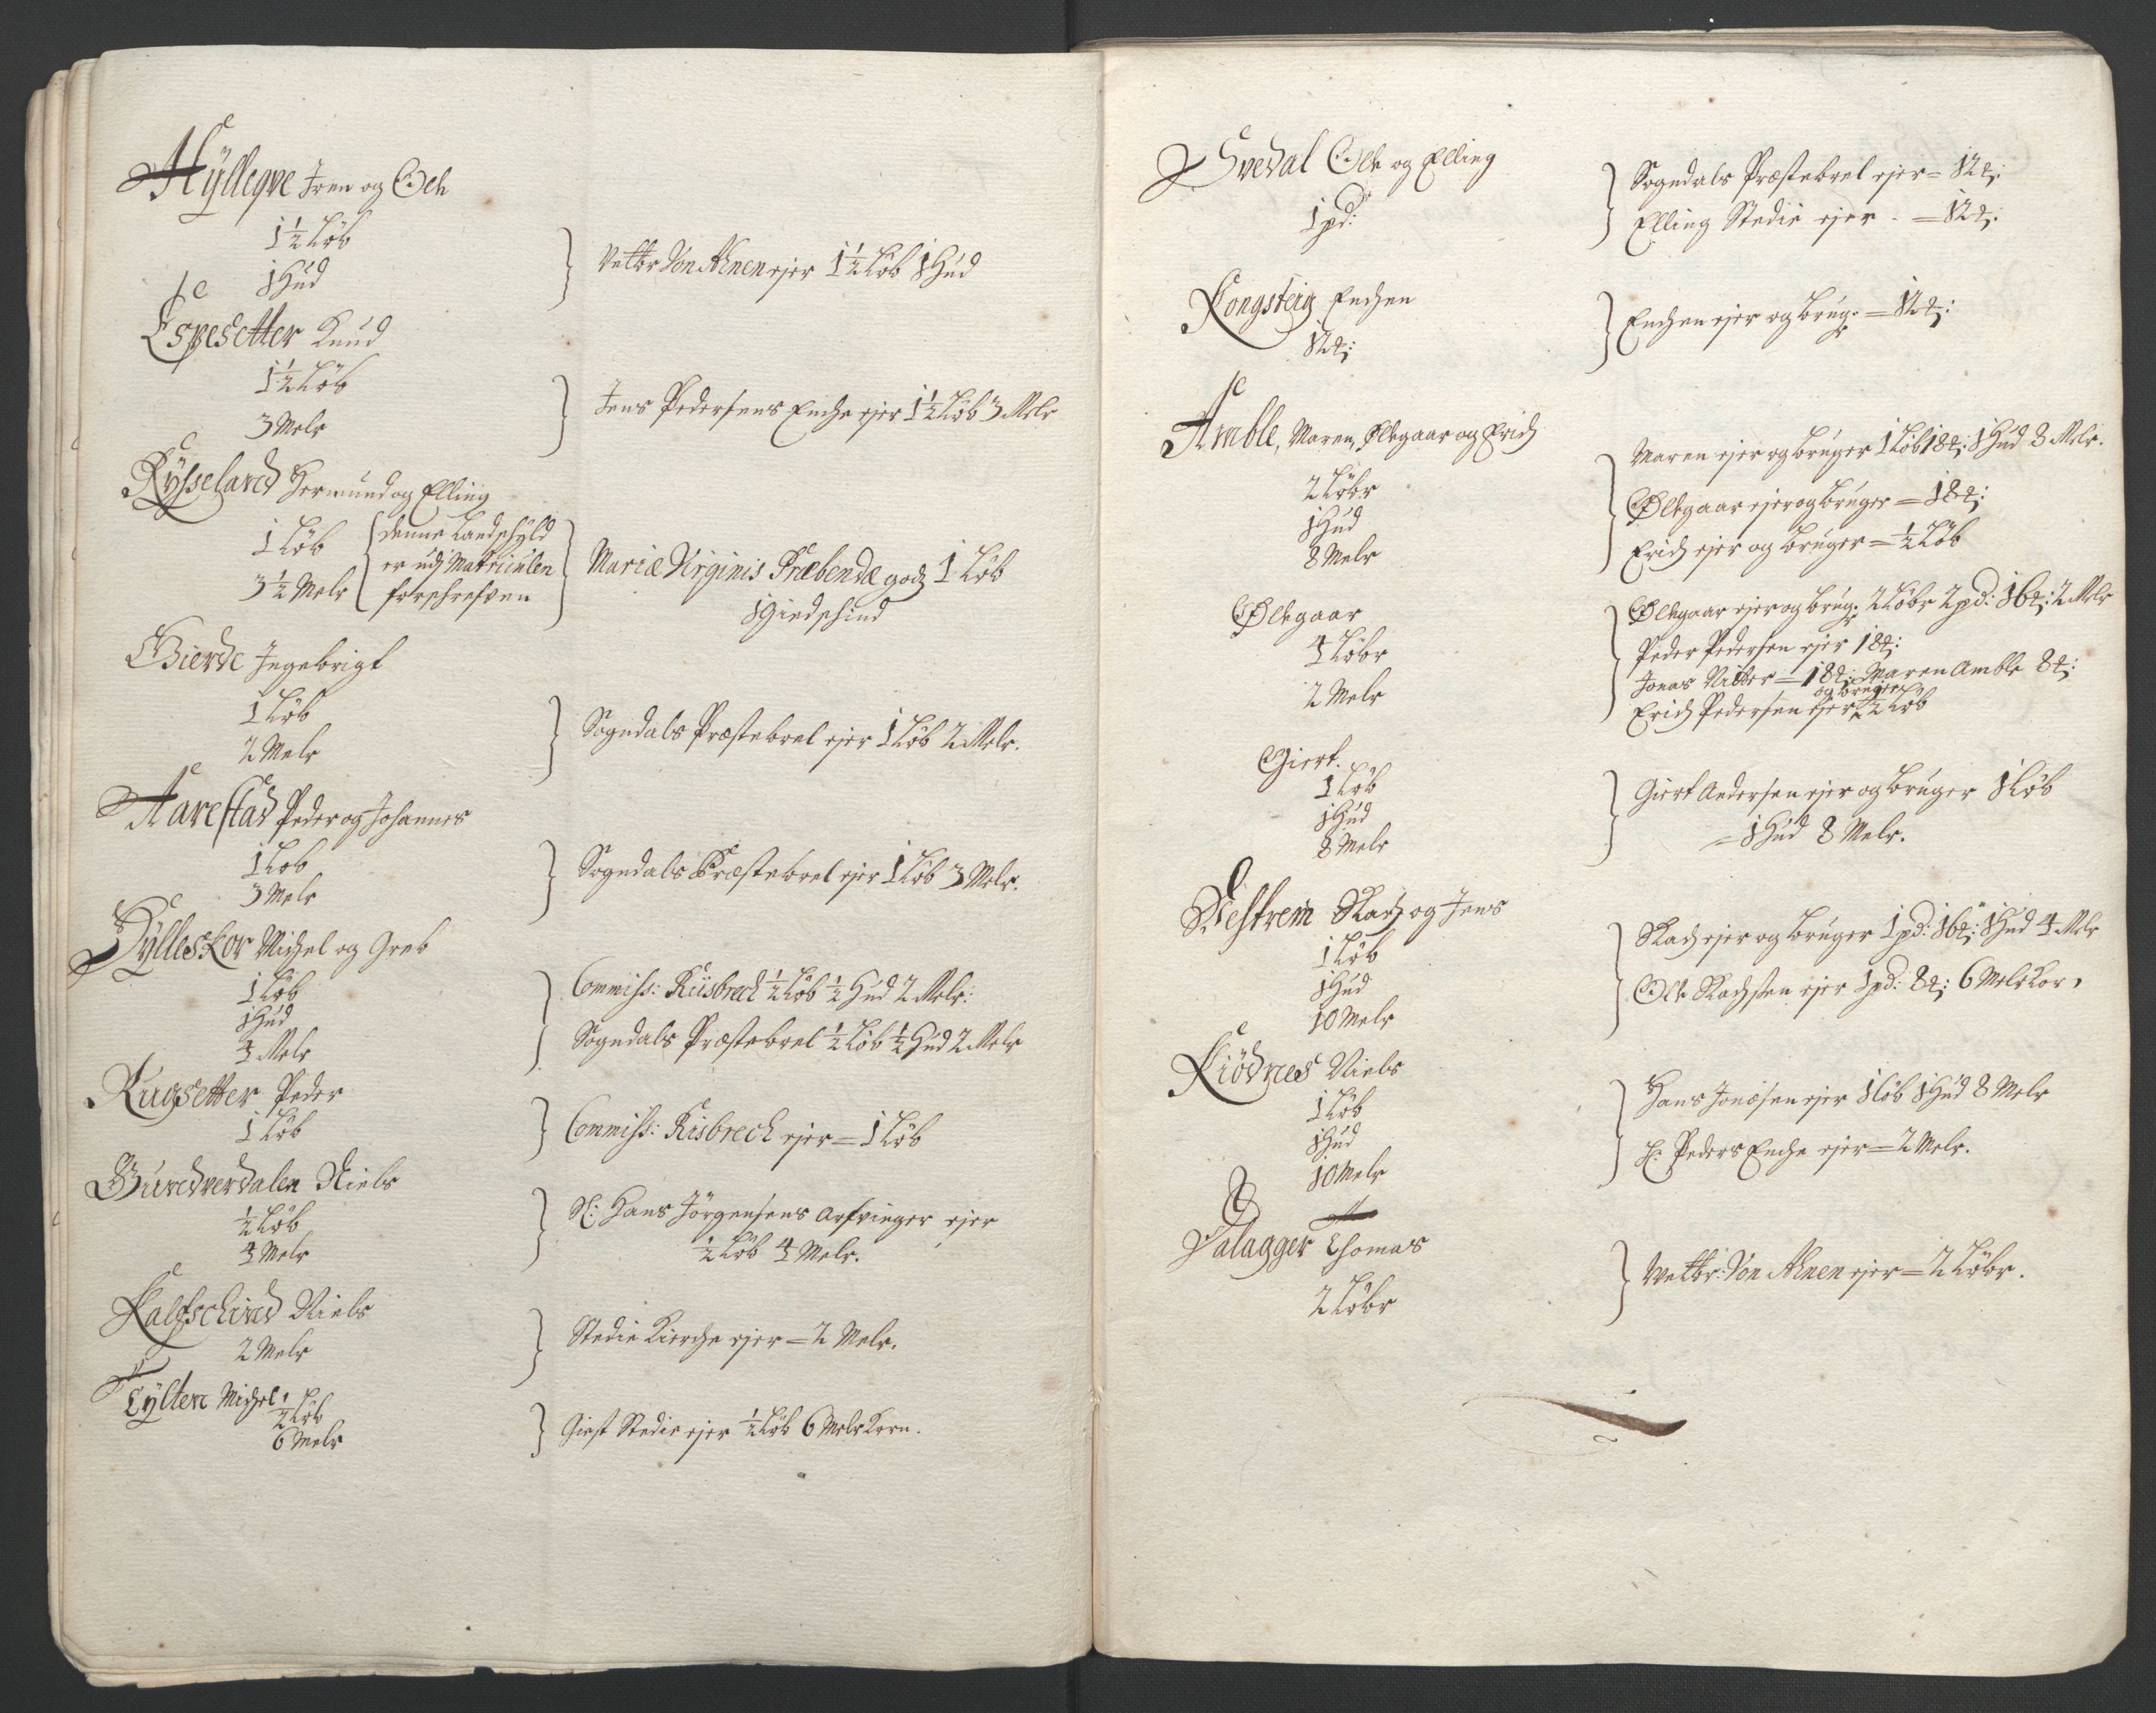 Hÿlleqve Iven og Ole
1½ Løb
1 Hud
Vetbr Von Ahnen ejer 1½ Løb 1 Hud
Espesetter Knud
1½ Løb
3 Melr
Jens Pedersens Enche ejer 1½ Løb 3 Melr
Rÿsseland Hermund og Elling
1 Løb
3½ Melr
denne Landschyld
er udj Matriculen
forschrefven
Mariæ Virginis Præbende godz 1 Løb
1 Giedschind
Gierde Ingebrigt
1 Løb
2 Melr
Sogndals Præstebroel ejer 1 Løb 2 Melr.
Aarestad Peder og Johannes
1 Løb
3 Melr
Sogndals Præstebroel ejer 1 Løb 3 Melr.
Hÿlleskor Michel og Greb
1 Løb
1 Hud
4 Melr
Commiss: Riisbrech ½ Løb ½ Hud 2 Melr:
Sogndals Præstebroel ½ Løb ½ Hud 2 Melr
Rugsetter Peder
1 Løb
Commiss: Risbrech ejer = 1 Løb
Gundverdalen Niels
½ Løb
4 Melr
Sl: Hans Jørgensens Arfvinger ejer
½ Løb 4 Melr.
Kalfschind Niels
2 Melr
Stedie Kierche ejer = 2 Melr.
Tÿlten Michel
½ Løb
6 Melr
Giest Stedie ejer ½ Løb 6 Melr Korn.
Svedal Ole og Elling
1 pd:
Sogndals Præstebroel ejer = 12 ℔:
Elling Stedie ejer - = 12 ℔:
Kongsteig Enchen
12 ℔:
Enchen ejer og brug: = 12 ℔:
Amble, Maren, Øllegaar og Erich
2 Løbr
1 Hud
8 Melr
Maren ejer og bruger 1 Løb 18 ℔: 1 Hud 8 Melr.
Øllegaar ejer og bruger = 18 ℔:
Erich ejer og bruger = ½ Løb
Øllegaar
4 Løbr
2 Melr
Øllegaar ejer og brug: 2 Løbr 2 pd: 16 ℔: 2 Melr
Peder Pedersen ejer 18 ℔:
Jonas Ritter = 18 ℔: Maren Amble 8 ℔:
og bruger
Erich Pedersen ejer ½ Løb
Giert.
1 Løb
1 Hud
8 Melr
Giert Andersen ejer og bruger 1 Løb
= 1 Hud 8 Melr.
Restrein Mads og Jens
1 Løb
1 Hud
10 Melr
Mads ejer og bruger 1 pd: 16 ℔: 1 Hud 4 Melr
Ole Madsen ejer 1 pd: 8 ℔: 6 Melr Kor,
Kiödnes Niels
1 Løb
1 Hud
10 Melr
Hans Jonæsen ejer 1 Løb 1 Hud 8 Melr
H: Peders Enche ejer = 2 Melr.
Dalagger Thomas
2 Løbr
Vetbr: Von Ahnen ejer = 2 Løbr.